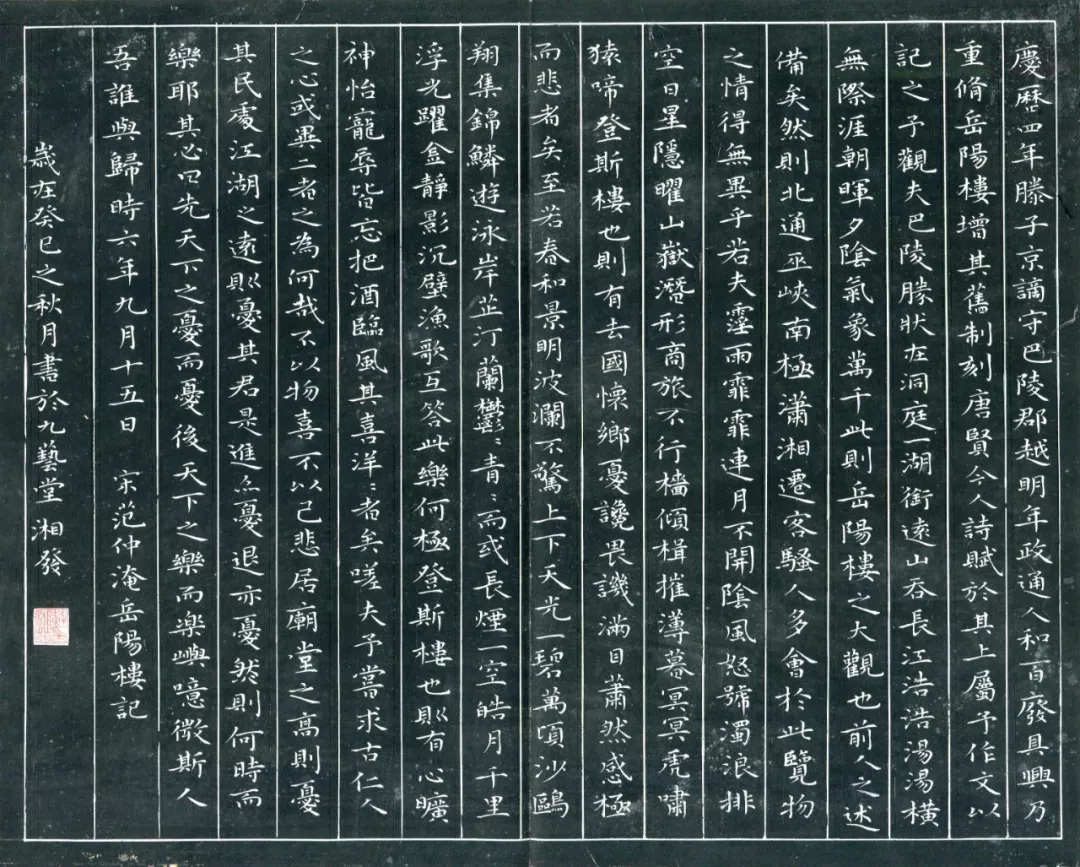 慶曆四年滕子京謫守巴陵郡越明年政通人和百廢具興乃
重脩岳陽樓增其舊制刻唐賢今人詩賦於其上屬予作文以
記之予觀夫巴陵勝狀在洞庭一湖銜遠山吞長江浩浩湯湯橫
無際涯朝暉夕陰氣象萬千此則岳陽樓之大觀也前人之述
備矣然則北通巫峽南極瀟湘遷客騷人多會於此覽物
之情得無異乎若夫霪雨霏霏連月不開陰風怒號濁浪排
空日星隱曜山嶽潛形商旅不行檣傾楫摧薄暮冥冥虎嘯
猿啼登斯樓也則有去國懷鄉憂讒畏譏滿目蕭然感極
而悲者矣至若春和景明波瀾不驚上下天光一碧萬頃沙鷗
翔集錦鱗遊泳岸芷汀蘭鬱〻青〻而或長煙一空皓月千里
浮光躍金靜影沉璧漁歌互答此樂何極登斯樓也則有心曠
神怡寵辱皆忘把酒臨風其喜洋〻者矣嗟夫予嘗求古仁人
之心或異二者之為何哉不以物喜不以己悲居廟堂之高則憂
其民處江湖之遠則憂其君是進亦憂退亦憂然則何時而
樂耶其必曰先天下之憂而憂後天下之樂而樂與噫微斯人
吾誰與歸時六年九月十五日 宋范仲淹岳陽樓記
歲在癸巳之秋月書於九藝堂湘發